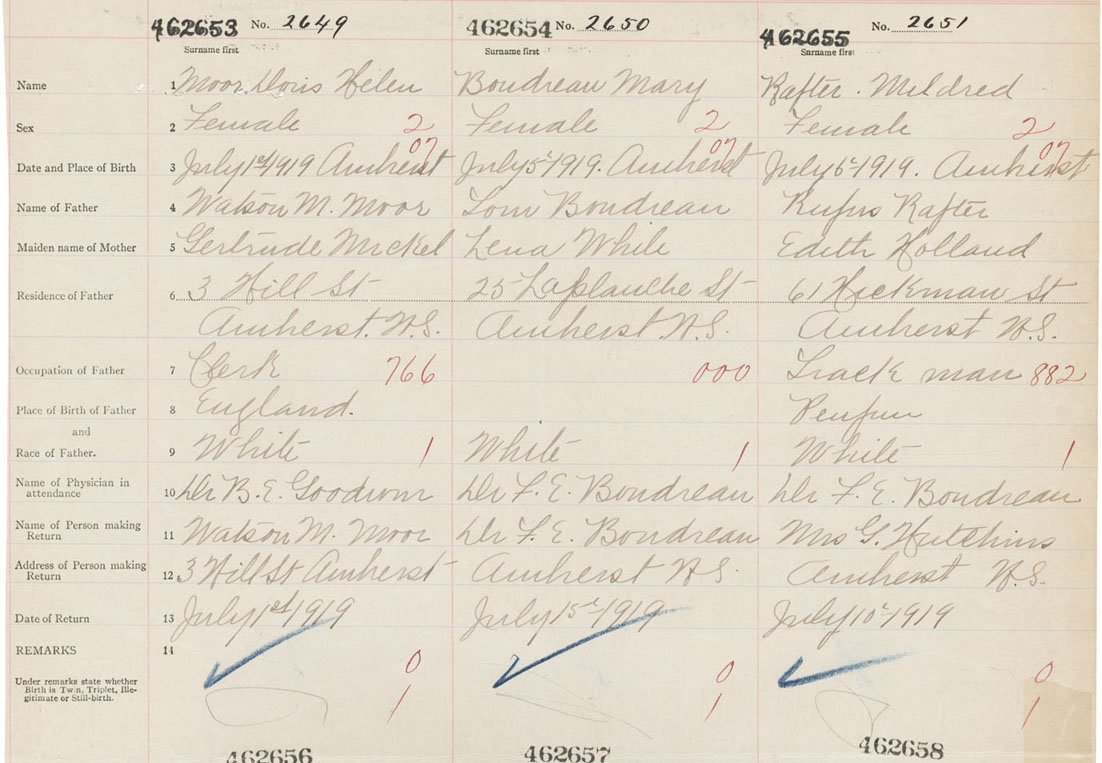 462653 No. 2649 462654 No. 2650 462655 No. 2651
Surname first Surname first Surname first
Name 1 Moor, Doris Helen Boudreau Mary Rafter. Mildred
Sex 2 Female 2 Female 2 Female 2
07 07 07
Date and Place of Birth 3 July 1st 1919 Amherst July 5th 1919. Amherst July 6th 1919. Amherst
Name of Father 4 Watson M. Moor Boudreau Rufus Rafter
Maiden name of Mother 5 Gertrude Mickel Lena White Edith Holland
Residence of Father 6 3 Hill St 25 Laplanche St 61 Hickman St
Amherst. N.S. Amherst N.S. Amherst N.S.
Occupation of Father 7 Clerk 766 000 Track man 882
Place of Birth of Father 8 England.
and
Race of Father. 9 White 1 White 1 White 1
Name of Physician in
attendance 10 Dr B. E. Goodwin Dr F. E. Boudreau Dr F. E. Boudreau
Name of Person making
Return 11 Watson M. Moor Dr F. E. Boudreau Mrs G. Hutchins
Address of Person making
Return 12 3 Hill St Amherst Amherst N.S. Amherst N.S.
Date of Return 13 July 1st 1919 July 15th 1919 July 10th 1919
REMARKS 14
Under remarks state whether
Birth is Twin, Triplet, Ille-
gitimate or Still-birth.
0 0 0
1 1 1
462656 462657 462658